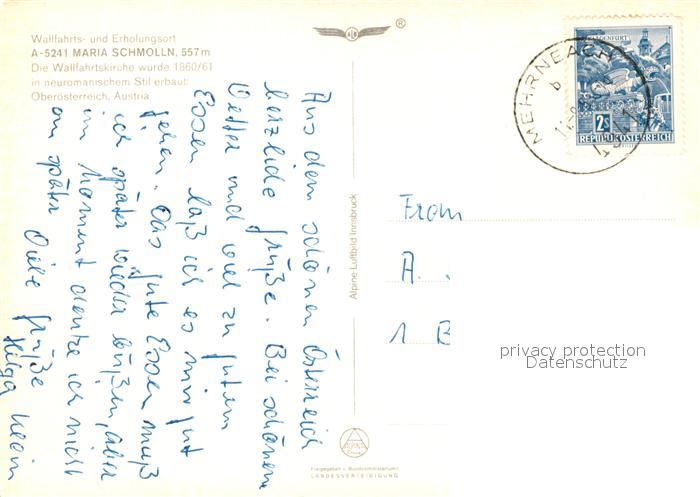 Wallfahrts- und Erholungsort
A-5241 MARIA SCHMOLLN, 557 m
Die Wallfahrtskirche wurde 1860/61
in neuromanischem Stil erbaut
Oberösterreich, Austria
®
KLAGENFURT
2S
REPUBLIK ÖSTERREICH
MEHRNBACH
b
Aus dem schönen Österreich
herzliche Grüße. Bei schönem
Wetter und viel zu gutem
Essen laß ich es mir gut
gehen. Das gute Essen muß
ich später wieder büßen, aber
im Moment denke ich nicht
an später
Viele Grüße
Helga
Alpine Luftbild Innsbruck
Frau
A.
1 B
privacy protection
Datenschutz
ALPINE
Freigegeben v. Bundesministerium f.
LANDESVERTEIDIGUNG